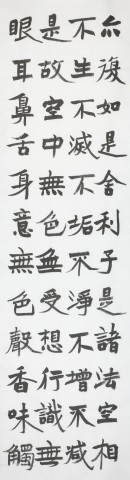 亦復如是舍利子是諸法空相
不生不滅不垢不淨不增不减
是故空中無色無受想行識無
眼耳鼻舌身意無色聲香味觸